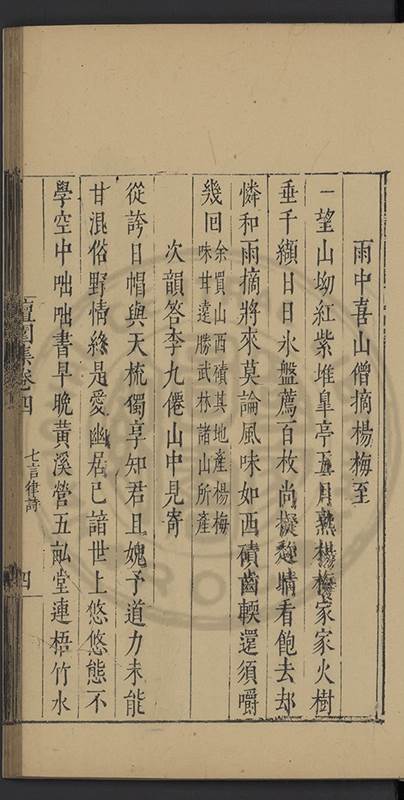 雨中喜山僧摘楊梅至
一望山坳紅紫堆皐亭五月熟楊梅家家火樹
垂千纈日日氷盤薦百枚尚擬趂晴看飽去却
憐和雨摘將來莫論風味如西磧齒輭還須嚼
幾回余買山西磧其地產楊梅
味甘遠勝武林諸山所產
次韻答李九僊山中見寄
從誇日帽與天梳獨享知君且媿予道力未能
甘混俗野情終是愛幽居已諳世上悠悠態不
學空中咄咄書早晚黃溪營五畝堂連梧竹水
集卷四
七言律詩
四